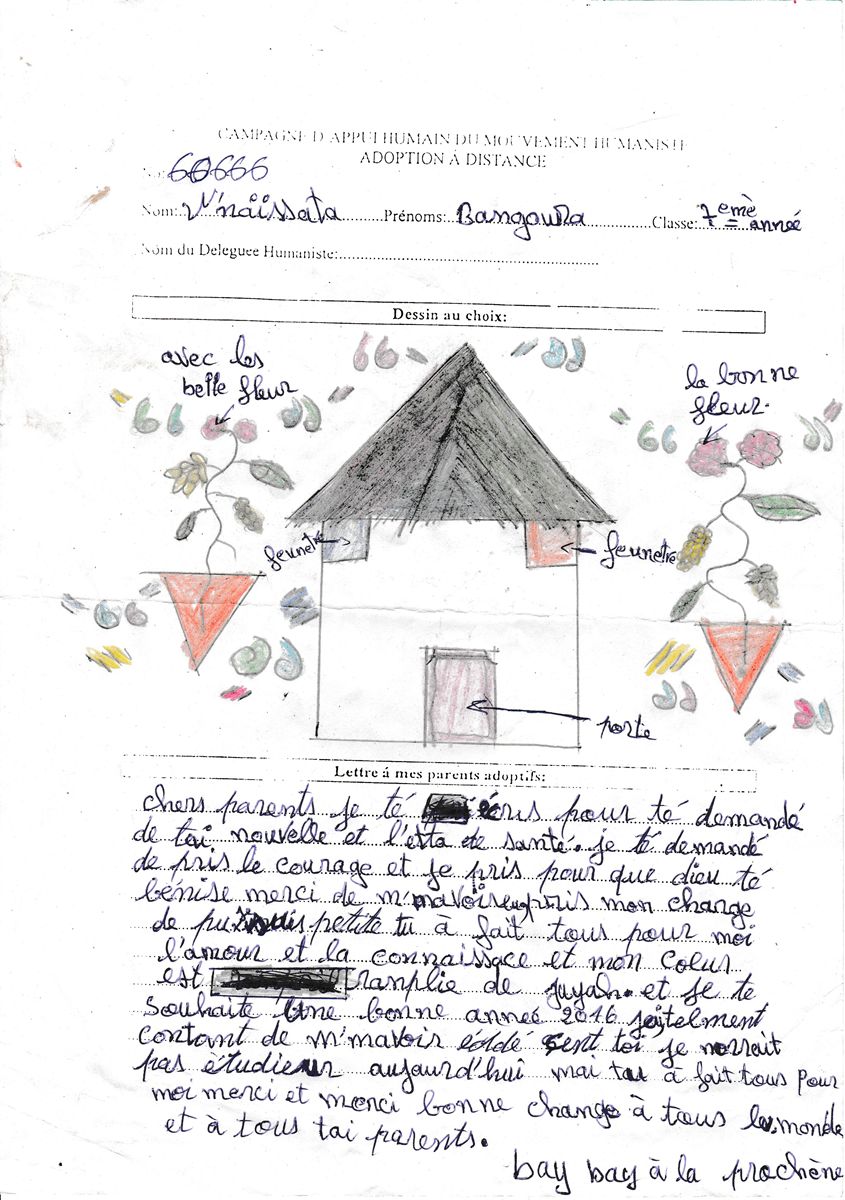 CAMPAGNE D'APPUI HUMAIN DU MOUVEMENT HUMANISTE
ADOPTION À DISTANCE
No: 60666
Nom: N'naïssata Prénoms: Bangoura Classe: 7emè année
Nom du Deleguee Humaniste:
Dessin au choix:
avec les
belle fleur
la bonne
fleur.
feunetre
feunetre
porte
Lettre á mes parents adoptifs:
chers parents je té écris pour té demandé
de tai nouvelle et l'esta de santé. je té demandé
de pris le courage et je pris pour que dieu té
bénise merci de m'mavoir pris mon change
de puis petite tu à fait tous pour moi
l'amour et la connaissace et mon coeur
est ranplie de juyah. et je te
souhaite une bonne anneé 2016 jeitelment
contant de m'mavoir éidé sent toi je norrait
pas étudier aujaurd'hui mai tu à fait tous pour
moi merci et merci bonne change à tous le monde
et à tous tai parents.
bay bay à la prochène